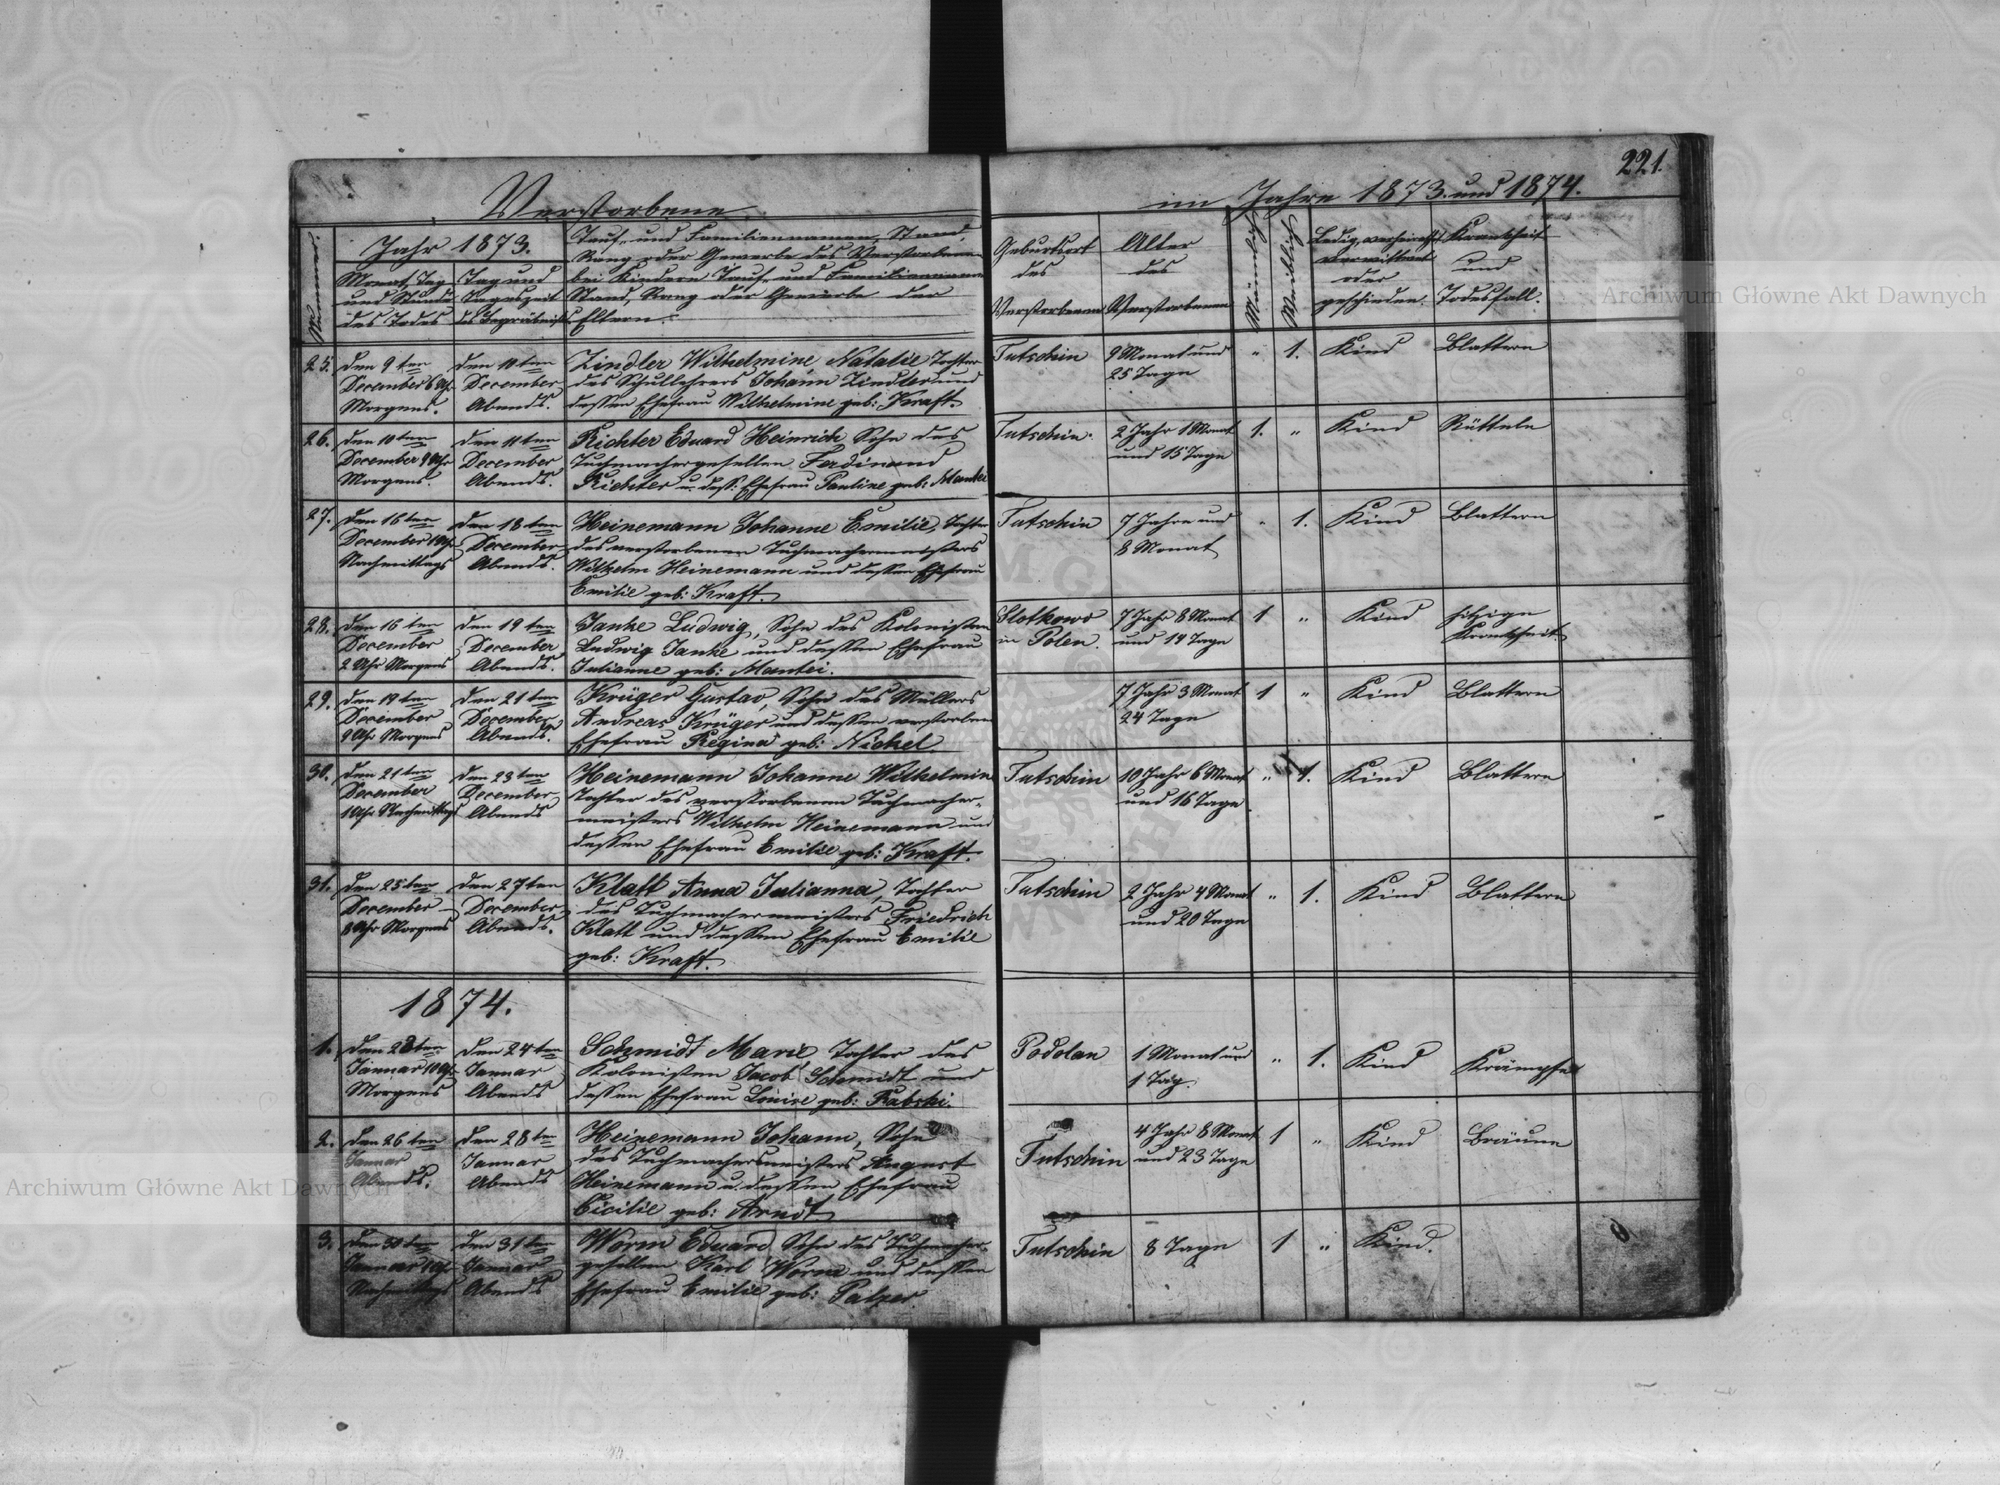 221.
Verstorbene im Jahre 1873. und 1874.
Nummer.
Jahr 1873.
Monat, Tag
und Stunde
des Todes
Tag und
Tageszeit
des Begräbnisses
Tauf- und Familiennamen, Stand,
Rang oder Gewerbe des Verstorbenen
bei Kindern Tauf- und Familiennamen
Stand, Rang oder Gewerbe der
Eltern.
Geburtsort
des
Verstorbenen
Alter
des
Verstorbenen
Männlich
Weiblich
Ledig, verheirathet
verwittwet
oder
geschieden.
Krankheit
und
Todesfall.
25.
den 9ten
December 6 Uhr
Morgens.
den 11ten
December
Abends.
Zindler Wilhelmine Natalie Tochter
des Schullehrers Johann Zindler und
dessen Ehefrau Wilhelmine geb: Kraft.
Tutschin
9 Monat und
25 Tage
" 1.
Kind
Blattern
26.
den 10ten
December 9 Uhr
Morgens.
den 11ten
December
Abends.
Richter Eduard Heinrich Sohn des
Tuchmachergesellen Ferdinand
Richter u. dess: Ehefrau Pauline geb: Mantei
Tutschin.
2 Jahr 1 Monat
und 15 Tage
1. "
Kind
Rütteln
27.
den 16ten
December 1 Uhr
Nachmittags
den 18ten
December
Abends.
Heinemann Johanne Emilie, Tochter
des verstorbenen Tuchmachermeisters
Wilhelm Heinemann und dessen Ehefrau
Emilie geb: Kraft.
Tutschin
7 Jahre und
8 Monat
" 1.
Kind
Blattern
28.
den 16ten
December
2 Uhr Morgens
den 19ten
December
Abends.
Janke Ludwig, Sohn des Kolonisten
Ludwig Janke und dessen Ehefrau
Julianne geb: Mantei.
Slotkowo
in Polen.
7 Jahr 8 Monat
und 14 Tage
1 "
Kind
hitzige
Krankheit.
29.
den 19ten
December
9 Uhr Morgens
den 21ten
December
Abends.
Krüger Gustav, Sohn des Müllers
Andreas Krüger und dessen verstorbene
Ehefrau Regina geb: Nickel
7 Jahr 3 Monat
24 Tage
1 "
Kind
Blattern
30.
den 21ten
December
1 Uhr Nachmittags
den 23ten
December
Abends
Heinemann Johanne Wilhelmine
Tochter des verstorbenen Tuchmacher-
meisters Wilhelm Heinemann und
dessen Ehefrau Emilie geb: Kraft.
Tutschin
10 Jahr 6 Monat
und 16 Tage
" 1.
Kind
Blattern
31.
den 25ten
December
8 Uhr Morgens
den 27ten
December
Abends.
Klatt Anna Julianna, Tochter
des Tuchmachermeisters Friedrich
Klatt und dessen Ehefrau Emilie
geb: Kraft.
Tutschin
2 Jahr 4 Monat
und 20 Tage
" 1.
Kind
Blattern
1874.
1.
Januar 10 Uhr
Morgens
den 24ten
Januar
Abends
Schmidt Marie, Tochter des
Kolonisten Jacob Schmidt und
dessen Ehefrau Louise geb: Rabski.
Podolan
1 Monat und
1 Tag.
" 1.
Kind
Krämpfe
2.
den 26ten
Januar
Abends.
den 28ten
Januar
Abends
Heinemann Johann, Sohn
des Tuchmachermeisters August
Heinemann u. dessen Ehefrau
Cicilie geb: Arndt
Tutschin
4 Jahr 8 Monat
und 23 Tage
1 "
Kind
Bräune
3.
den 30ten
Januar
Nachmittags
den 31ten
Januar
Abends
Worm Eduard, Sohn des Tuchmacher-
gesellen Karl Worm und dessen
Ehefrau Emilie geb: Patzer.
Tutschin
8 Tage
1 "
Kind.
Archiwum Główne Akt Dawnych
Archiwum Główne Akt Dawnych